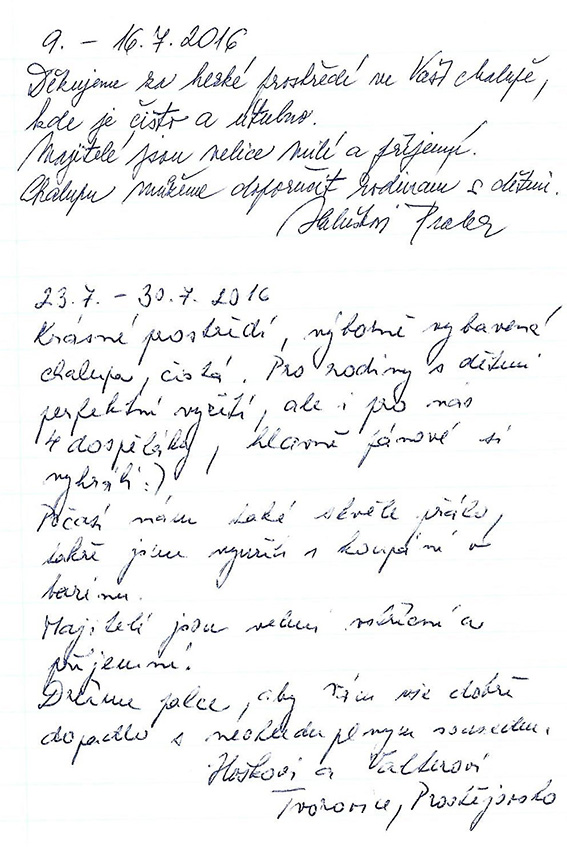 9. – 16.7.2016
Děkujeme za hezké prostředí ve Vaší chalupě,
kde je čisto a útulno.
Majitelé jsou velice milí a příjemní.
Chalupu můžeme doporučit rodinám s dětmi.
Praha
23.7. – 30.7. 2016
Krásné prostředí, výborně vybavená
chalupa, čistá. Pro rodiny s dětmi
perfektní vyžití, ale i pro nás
4 dospěláky, hlavně pánové si
vyhráli :)
Počasí nám také skvěle přálo,
takže jsme využili i koupání v
bazénu.
Majitelé jsou velmi vstřícní a
příjemní.
Držíme palce, aby Vám vše dobře
dopadlo s neohleduplným sousedem.
Hoškovi a Valterovi
Tvorovice, Prostějovsko